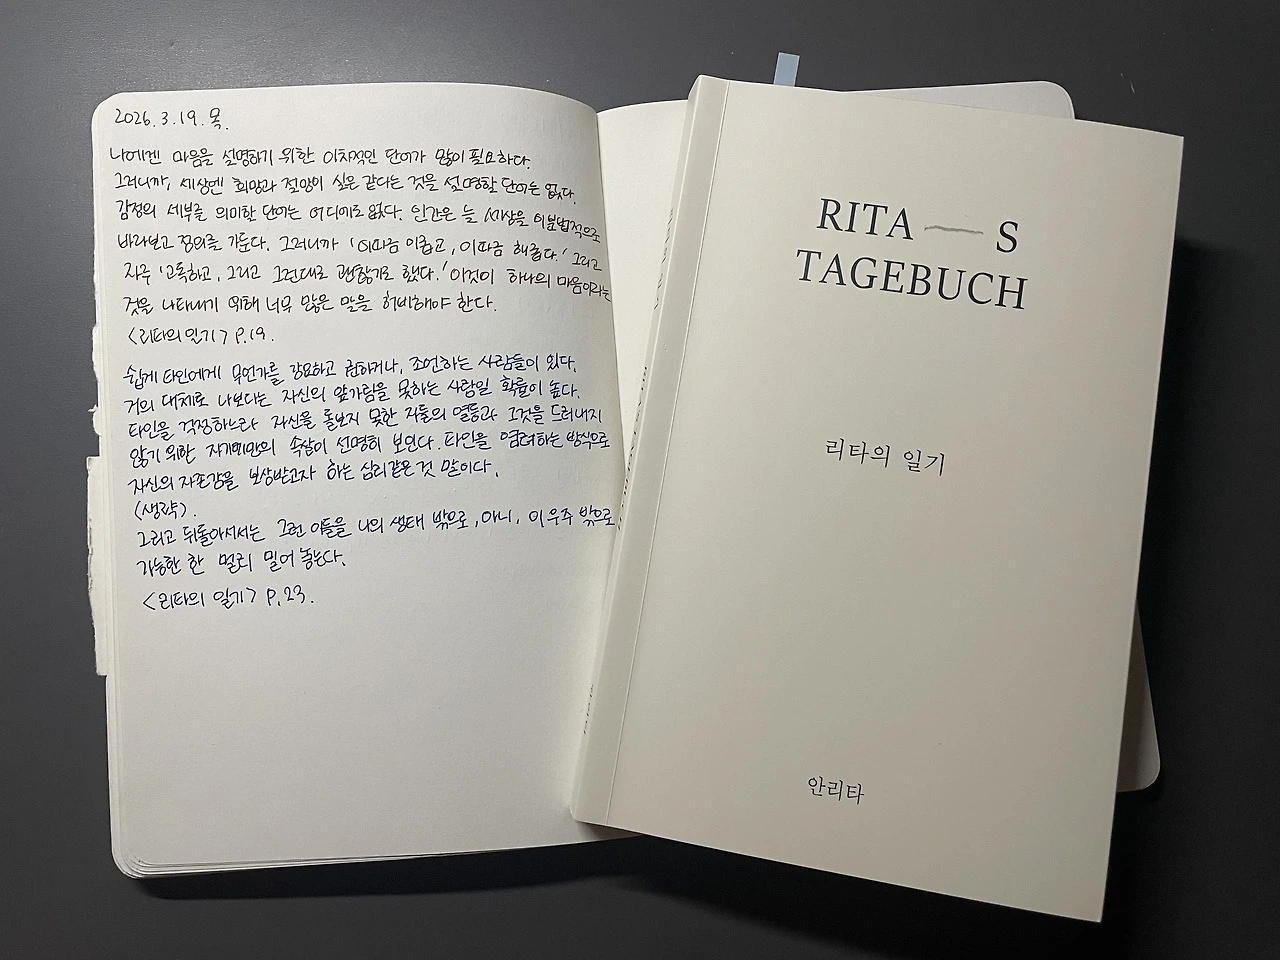 2026.3.19.목.
나에겐 마음을 설명하기 위한 이차적인 단어가 많이 필요하다.
그러니까, 세상엔 희망과 절망이 실은 같다는 것을 설명할 단어는 없다.
감정의 세부를 의미한 단어는 어디에도 없다. 인간은 늘 세상을 이분법적으로
바라보고 정의를 가둔다. 그러니까 '이따금 이롭고, 이따금 해롭다.' 그리고
자주 '고독하고, 그리고 그런대로 괜찮기도 했다.' 이것이 하나의 마음이라는
것을 나타내기 위해 너무 많은 말을 허비해야 한다.
<리타의 일기> P.19.
쉽게 타인에게 무언가를 강요하고 권하거나, 조언하는 사람들이 있다.
거의 대체로 나보다는 자신의 앞가림을 못하는 사람일 확률이 높다.
타인을 걱정하느라 자신을 돌보지 못한 자들의 열등과 그것을 드러내지
않기 위한 자기기만의 속살이 선명히 보인다. 타인을 염려하는 방식으로
자신의 자존감을 보상받고자 하는 심리같은 것 말이다.
(생략).
그리고 뒤돌아서서는 그런 이들을 나의 생태 밖으로, 아니, 이 우주 밖으로
가능한 한 멀리 밀어 놓는다.
<리타의 일기> P.23.
RITA — S
TAGEBUCH
리타의 일기
안리타